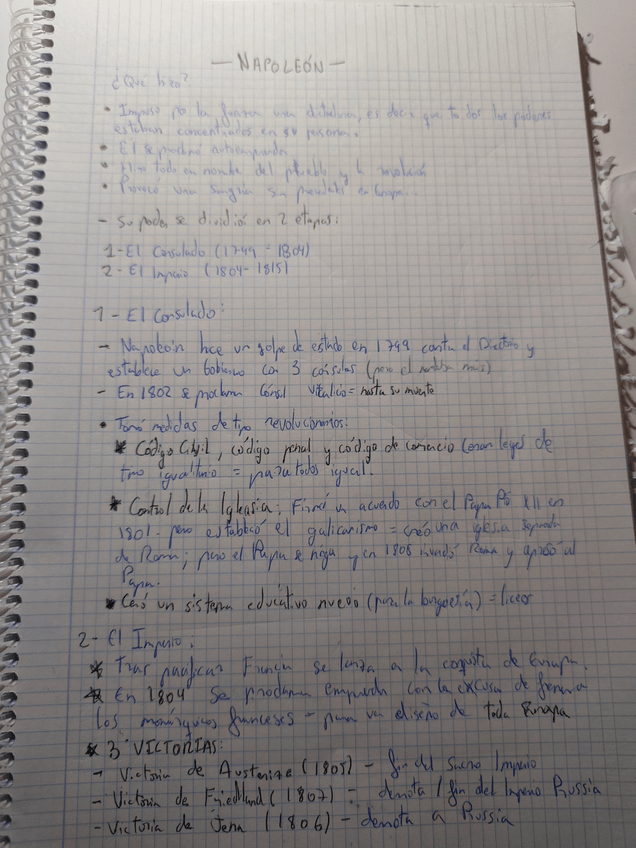 — NAPOLEÓN —
¿Que hizo?
• Impuso por la fuerza una dictadura, es decir que todos los poderes
estaban concentrados en su persona.
• El se proclamó autoemperador
• Hizo todo en nombre del pueblo y la revolución
• Provocó una sangría sin precedentes en Europa..
- Su poder se dividió en 2 etapas:
1 - El Consulado (1799 - 1804)
2 - El Imperio (1804 - 1815)
1 - El Consulado:
- Napoleón hace un golpe de estado en 1799 contra el Directorio y
establece un Gobierno con 3 cónsules (pero el mandaba más)
- En 1802 se proclama Cónsul Vitalicio = hasta su muerte
• Tomó medidas de tipo revolucionarios:
* Código Civil, código penal y código de comercio (eran leyes de
tipo igualitario = para todos igual.
* Control de la Iglesia; Firmó un acuerdo con el Papa Pío VII en
1801. pero estableció el galicanismo = creó una iglesia separada
de Roma; pero el Papa se niega y en 1808 invadió Roma y apresó al
Papa.
* Creó un sistema educativo nuevo (para la burguesía) = liceos
2 - El Imperio:
* Tras pacificar Francia se lanza a la conquista de Europa.
* En 1804 se proclama emperador con la excusa de frenar a
los monárquicos franceses - para un diseño de toda Europa
* 3 VICTORIAS:
- Victoria de Austerize (1805) - fin del sacro Imperio
- Victoria de Friedland (1807) - derrota / fin del Imperio Russia
- Victoria de Jena (1806) - derrota a Prussia